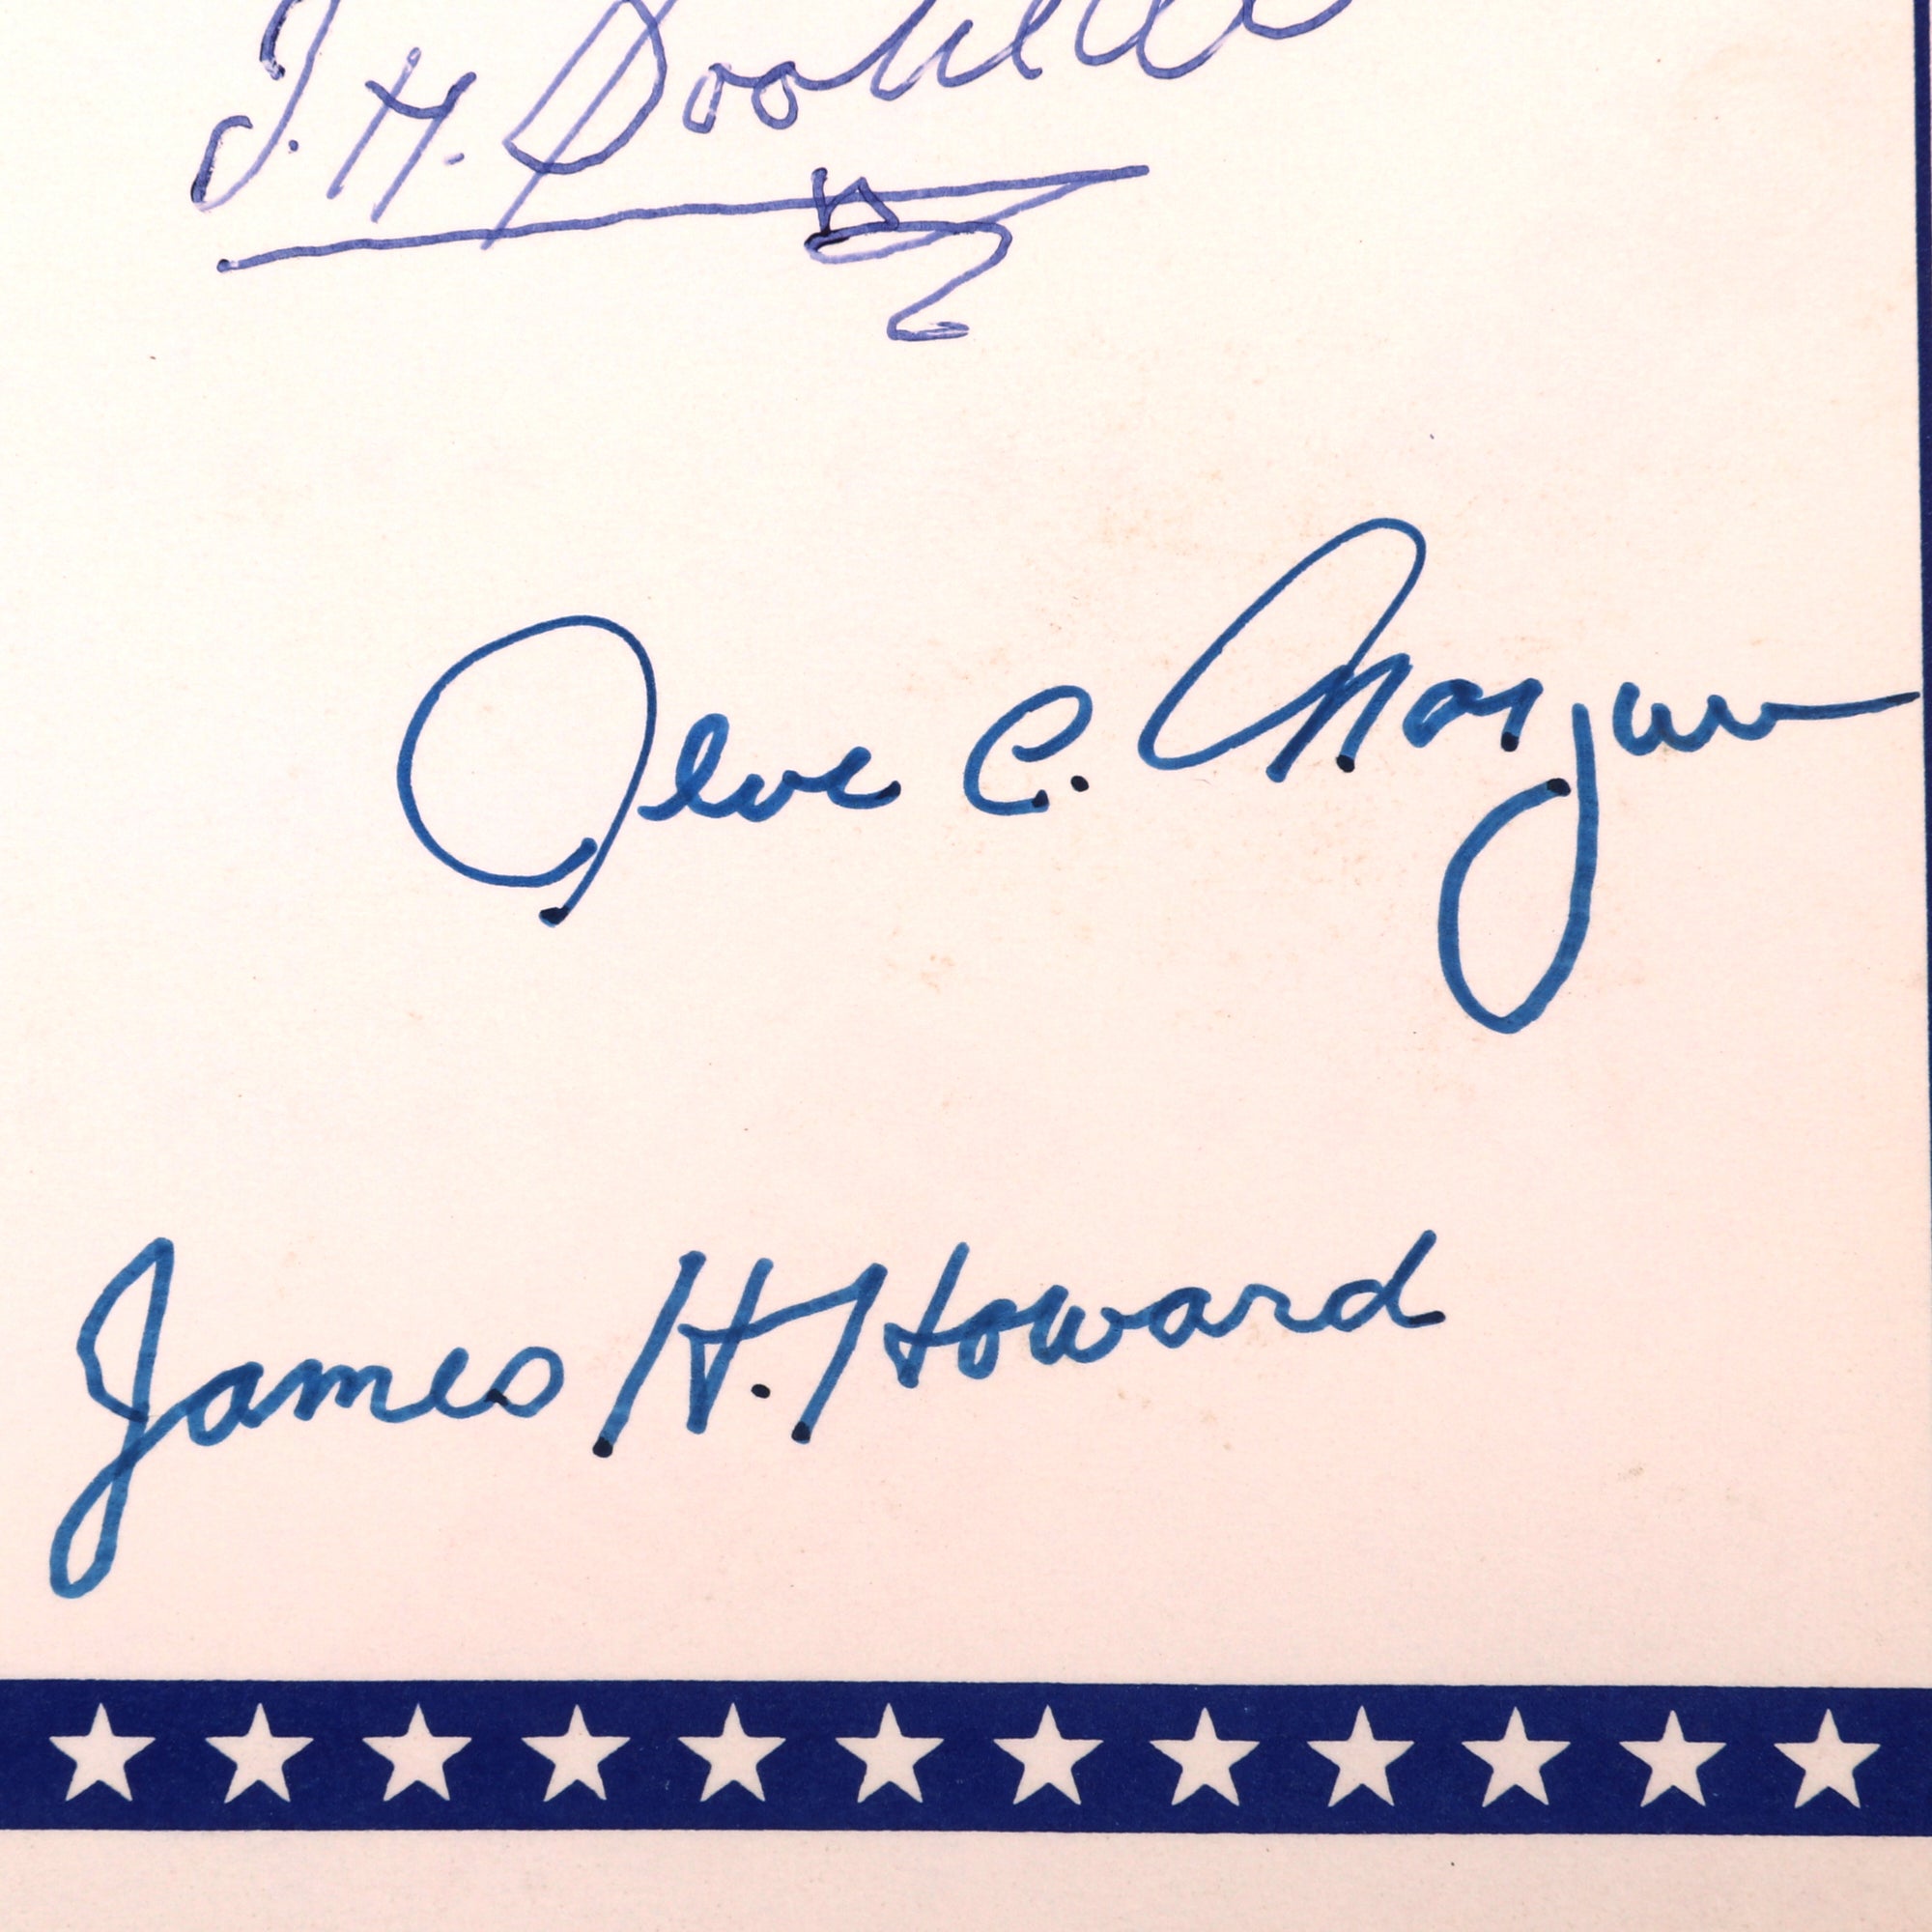 J. H. Doolittle
Jeff C. Morgan
James H. Howard